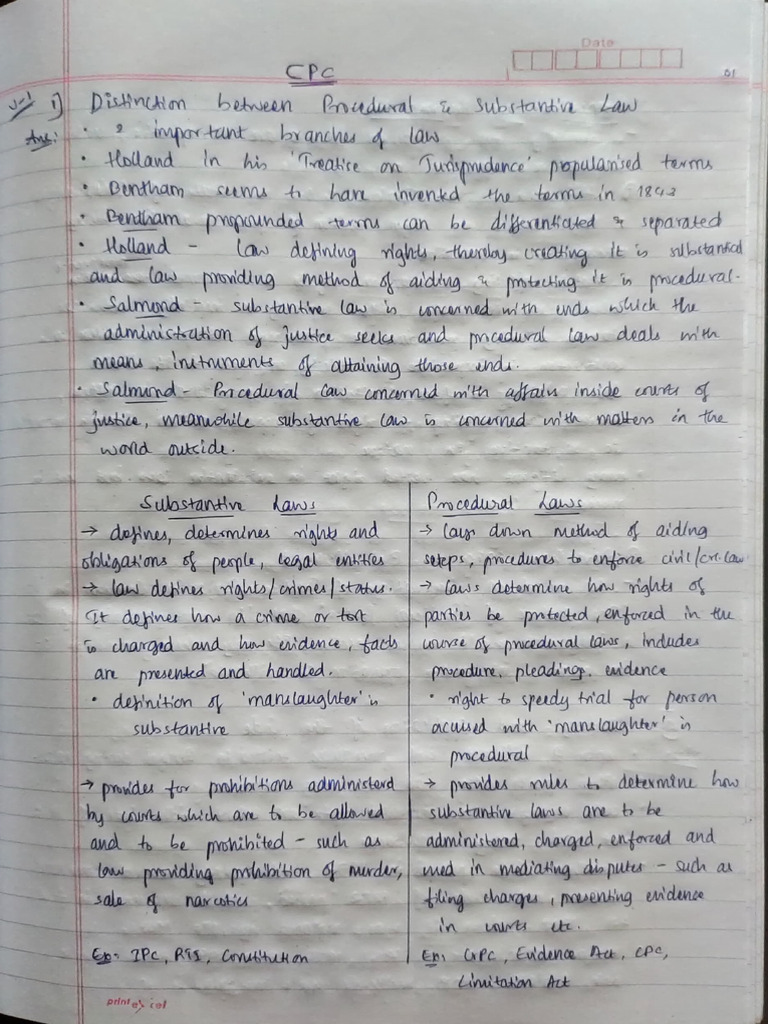 Date
CPC
01
U-1 i) Distinction between Procedural & Substantive Law
Ans: • 2 important branches of law
• Holland in his 'Treatise on Jurisprudence' popularised terms
• Bentham seems to have invented the terms in 1843
• Bentham propounded terms can be differentiated & separated
• Holland - law defining rights, thereby creating it is substantial
and law providing method of aiding & protecting it is procedural.
• Salmond - substantive law is concerned with ends which the
administration of justice seeks and procedural law deals with
means, instruments of attaining those ends.
• Salmond - Procedural law concerned with affairs inside courts of
justice, meanwhile substantive law is concerned with matters in the
world outside.
Substantive Laws
→ defines, determines rights and
obligations of people, legal entities
→ law defines rights/crimes/status.
It defines how a crime or tort
is charged and how evidence, facts
are presented and handled.
• definition of 'manslaughter' is
substantive
→ provides for prohibitions administerd
by courts which are to be allowed
and to be prohibited - such as
law providing prohibition of murder,
sale of narcotics
Ex: IPC, Constitution
Procedural Laws
→ lays down method of aiding
steps, procedures to enforce civil/cri.law
→ laws determine how rights of
parties be protected, enforced in the
course of procedural laws, includes
procedure, pleadings, evidence
• right to speedy trial for person
accused with 'manslaughter' is
procedural
→ provides rules to determine how
substantive laws are to be
administered, charged, enforced and
used in mediating disputes - such as
filing charges, presenting evidence
in courts etc.
Ex: CrPC, Evidence Act, CPC,
Limitation Act